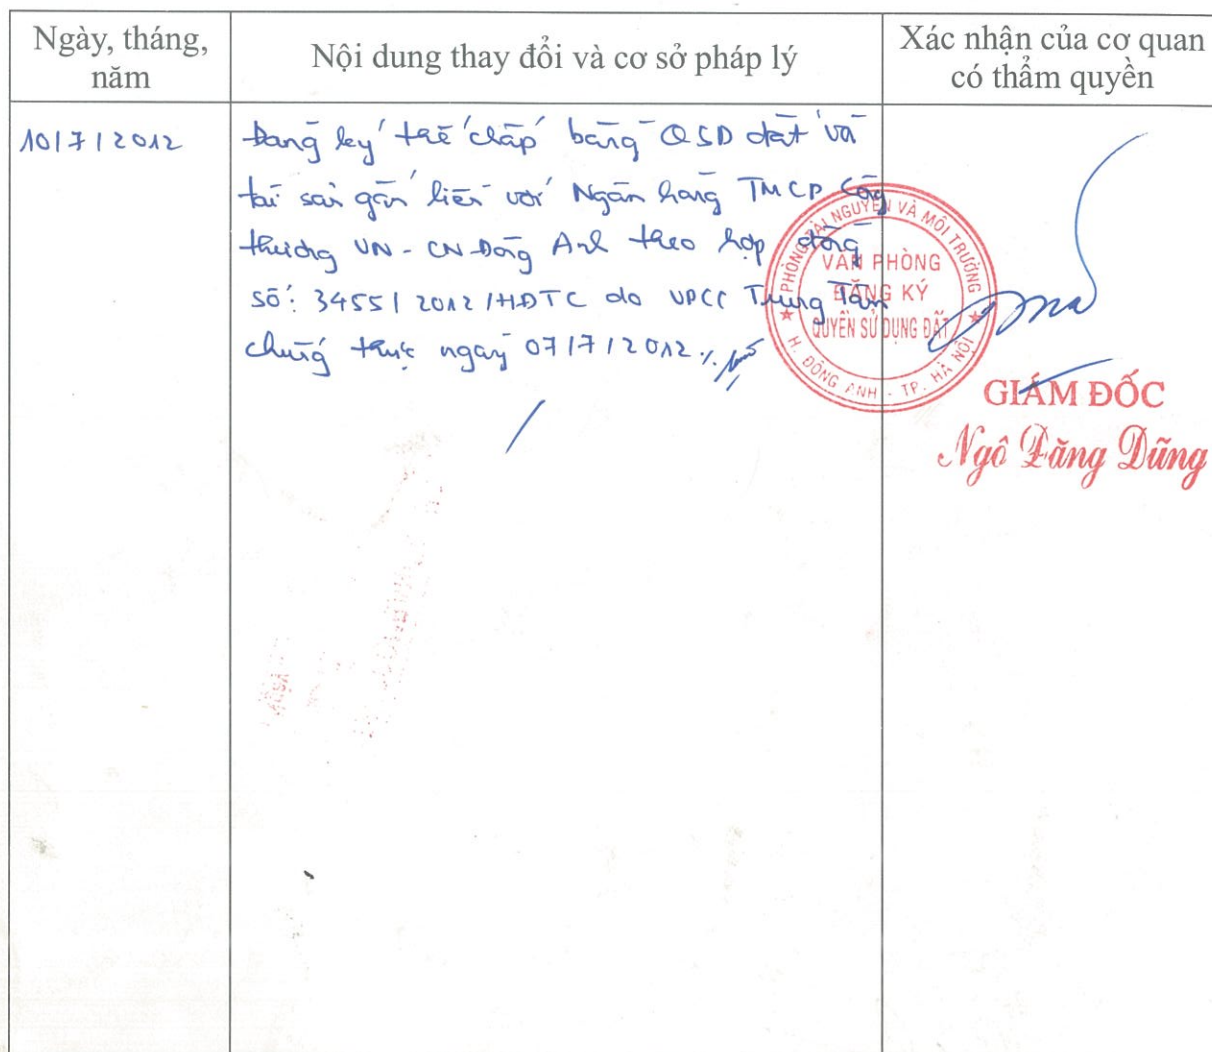 Ngày, tháng,
năm
Nội dung thay đổi và cơ sở pháp lý
Xác nhận của cơ quan
có thẩm quyền
10/7/2012
Đăng ký thế chấp bằng QSD đất và
tài sản gắn liền với Ngân hàng TMCP Công
thương VN - CN Đông Anh theo hợp đồng
số: 3455/2012/HĐTC do VPCC Trung Tâm
chứng thực ngày 07/7/2012 ./.
PHÒNG TÀI NGUYÊN VÀ MÔI TRƯỜNG
VĂN PHÒNG
ĐĂNG KÝ
QUYỀN SỬ DỤNG ĐẤT
H. ĐÔNG ANH - TP. HÀ NỘI
GIÁM ĐỐC
Ngô Đăng Dũng